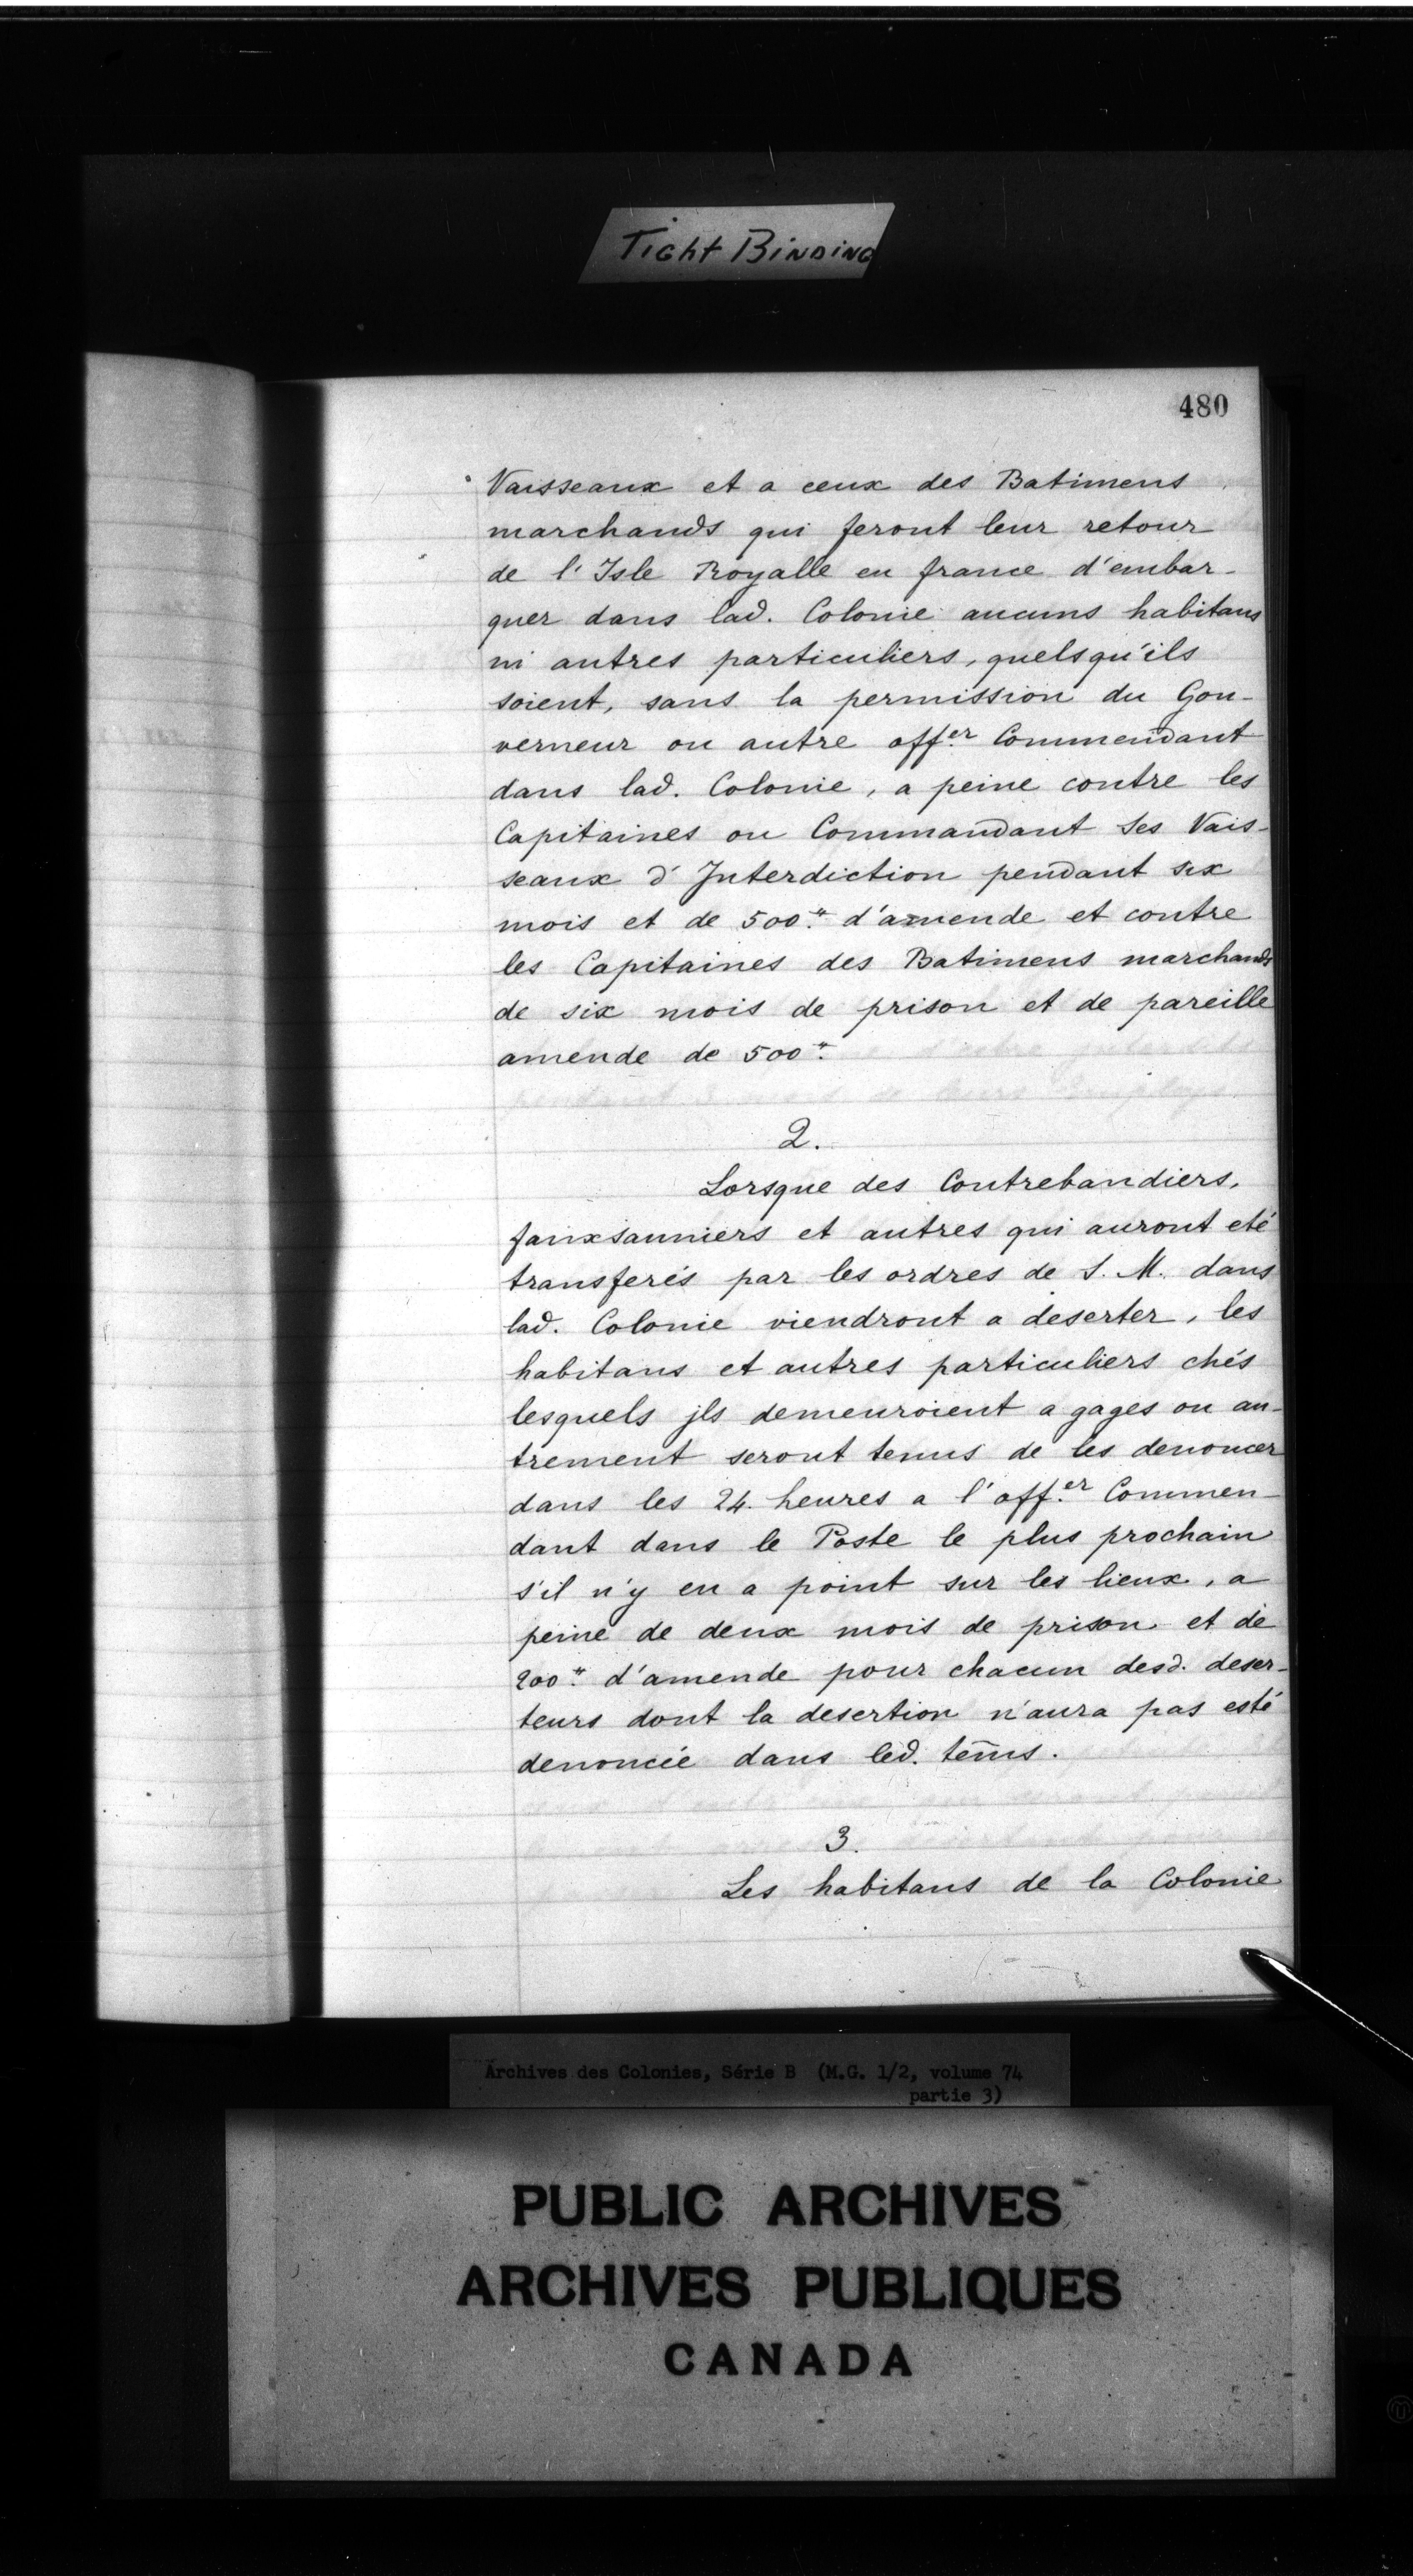 Tight Binding
480
Vaisseaux et a ceux des Batimens
marchands qui feront leur retour
de l'Isle Royalle en france d'embar-
quer dans lad. Colonie aucuns habitans
ni autres particuliers, quelsqu'ils
soient, sans la permission du Gou-
verneur ou autre off.er Commendant
dans lad. Colonie, a peine contre les
Capitaines ou Commandant ses Vais-
seaux d'Interdiction pendant six
mois et de 500.# d'amende et contre
les Capitaines des Batimens marchands
de six mois de prison et de pareille
amende de 500.#
2.
Lorsque des Contrebandiers,
fauxsauniers et autres qui auront eté
transferés par les ordres de S. M. dans
lad. Colonie viendront a deserter, les
habitans et autres particuliers chés
lesquels jls demeuroient a gages ou au-
trement seront tenus de les denoncer
dans les 24. heures a l'off.er Commen-
dant dans le Poste le plus prochain
s'il n'y en a point sur les lieux, a
peine de deux mois de prison et de
200.# d'amende pour chacun desd. deser-
teurs dont la desertion n'aura pas esté
denoncée dans led. tem̃s.
3.
Les habitans de la Colonie
Archives des Colonies, Série B (M.G. 1/2, volume 74
partie 3)
PUBLIC ARCHIVES
ARCHIVES PUBLIQUES
CANADA